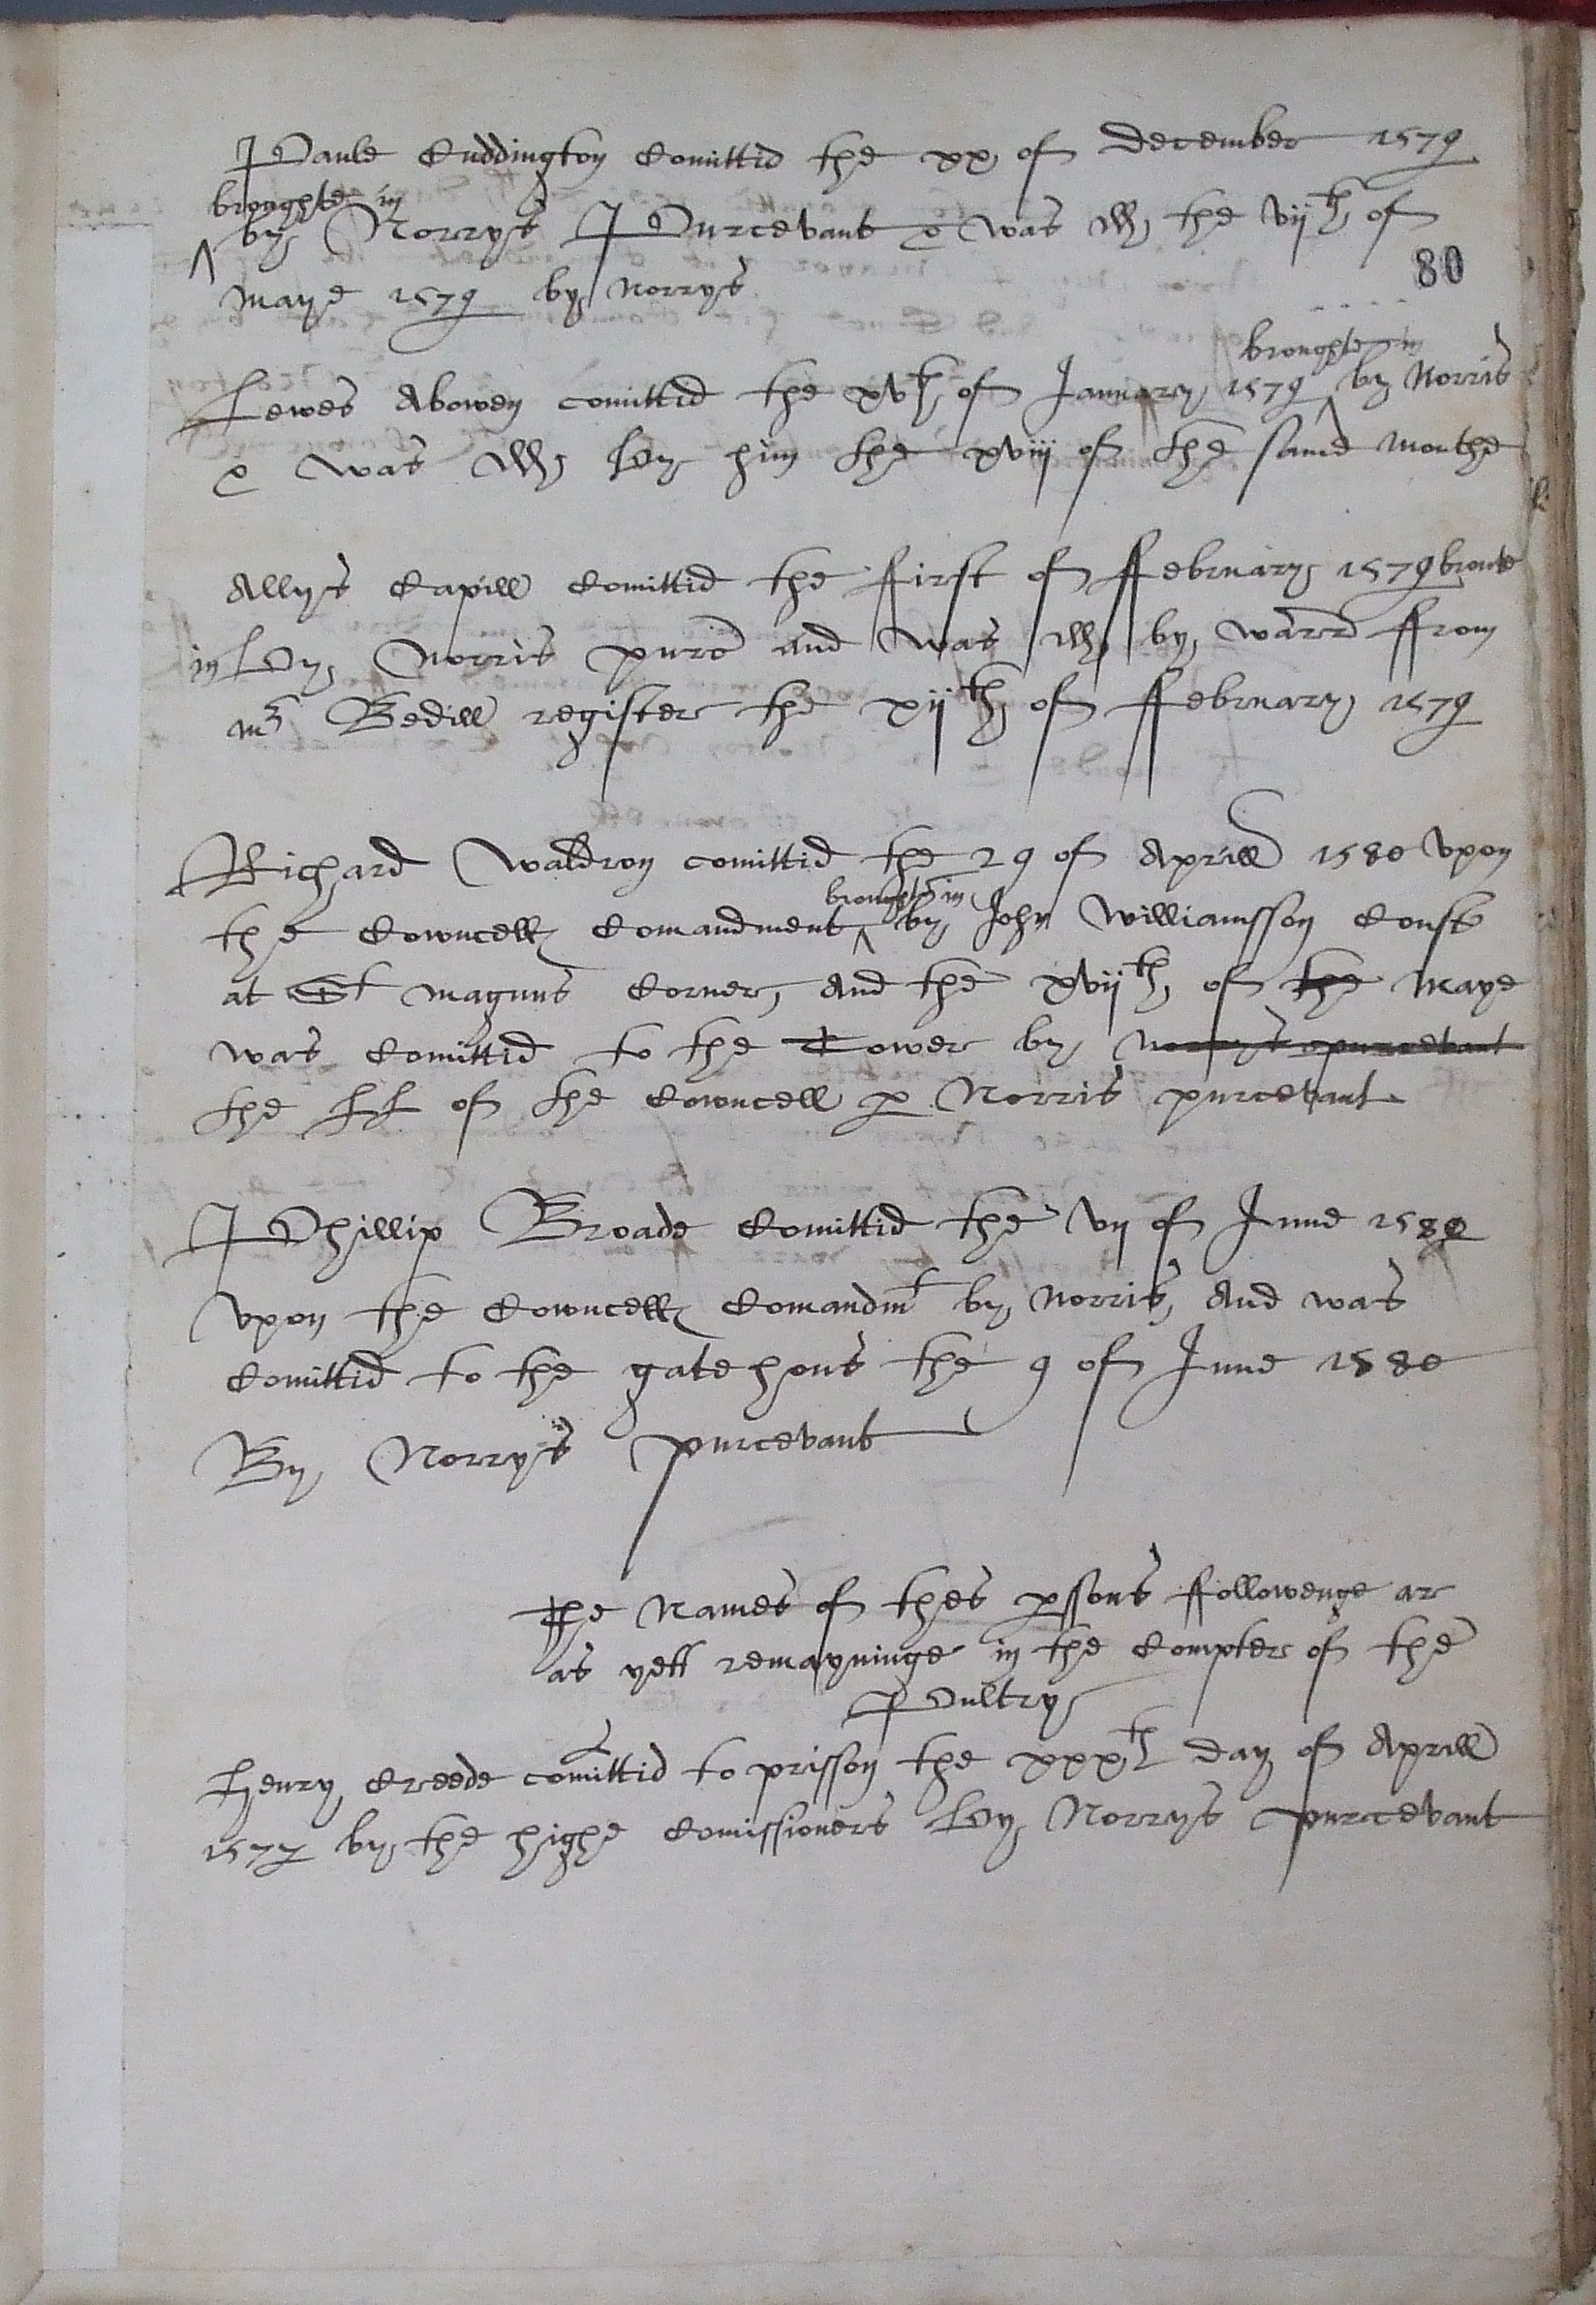 Paule Cuddington Comittid the xx of december 1579
broughte in
by Norrys Purcevant & was dd the viith of
80
Maye 1579 by Norrys
broughte in
Lewes Abowen comittid the xvth of January 1579 by Norris
& was dd by him the xviii of the same monthe
Allys Capill Comittid the ffirst of ffebruary 1579 broute
in by Norris purc and was dd by warrd ffrom
mr Bedill register the xiith of ffebruary 1579
Richard Waldron comittid the 29 of Aprill 1580 vpon
broughte in
the Cowncells Comandment by John Williamsson Const
at St magnus Corner, And the xviith of the Maye
was Comittid to the Tower by Norrys purcevant
the LL of the Cowncell p Norris purcevant
Phillip Broade Comittid the vii of June 1580
vpon the Cowncells Comandmt by Norris, And was
Comittid to the gate hous the 9 of June 1580
By Norrys purcevant
The Names of thes pssons ffollowenge ar
as yett remayninge in the Compter of the
Poultry
Henry Creede comittid to prisson the xxxth day of Aprill
1577 by the highe Comissioners by Norrys purcevant